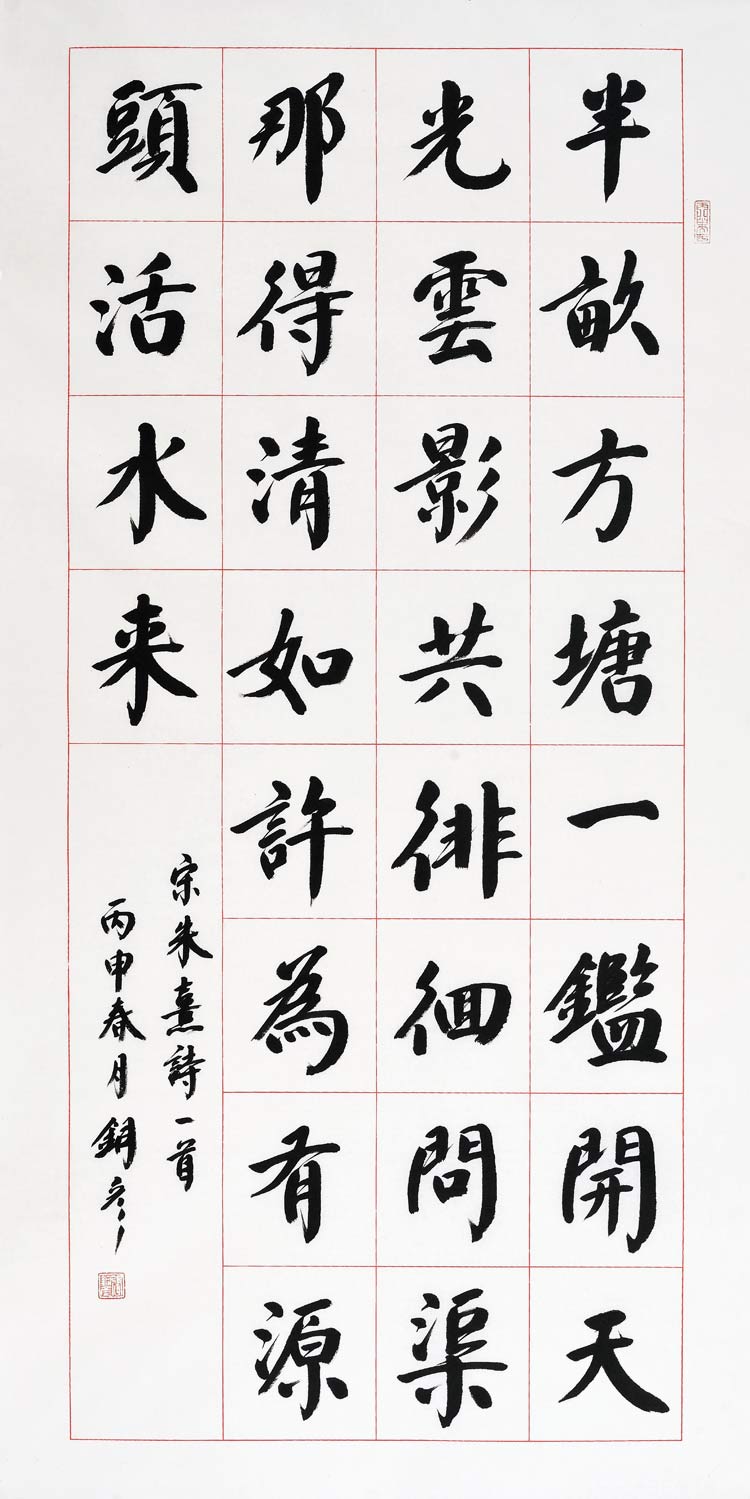 半畝方塘一鑑開天
光雲影共徘徊問渠
那得清如許為有源
頭活水来
宋朱熹詩一首
丙申春月